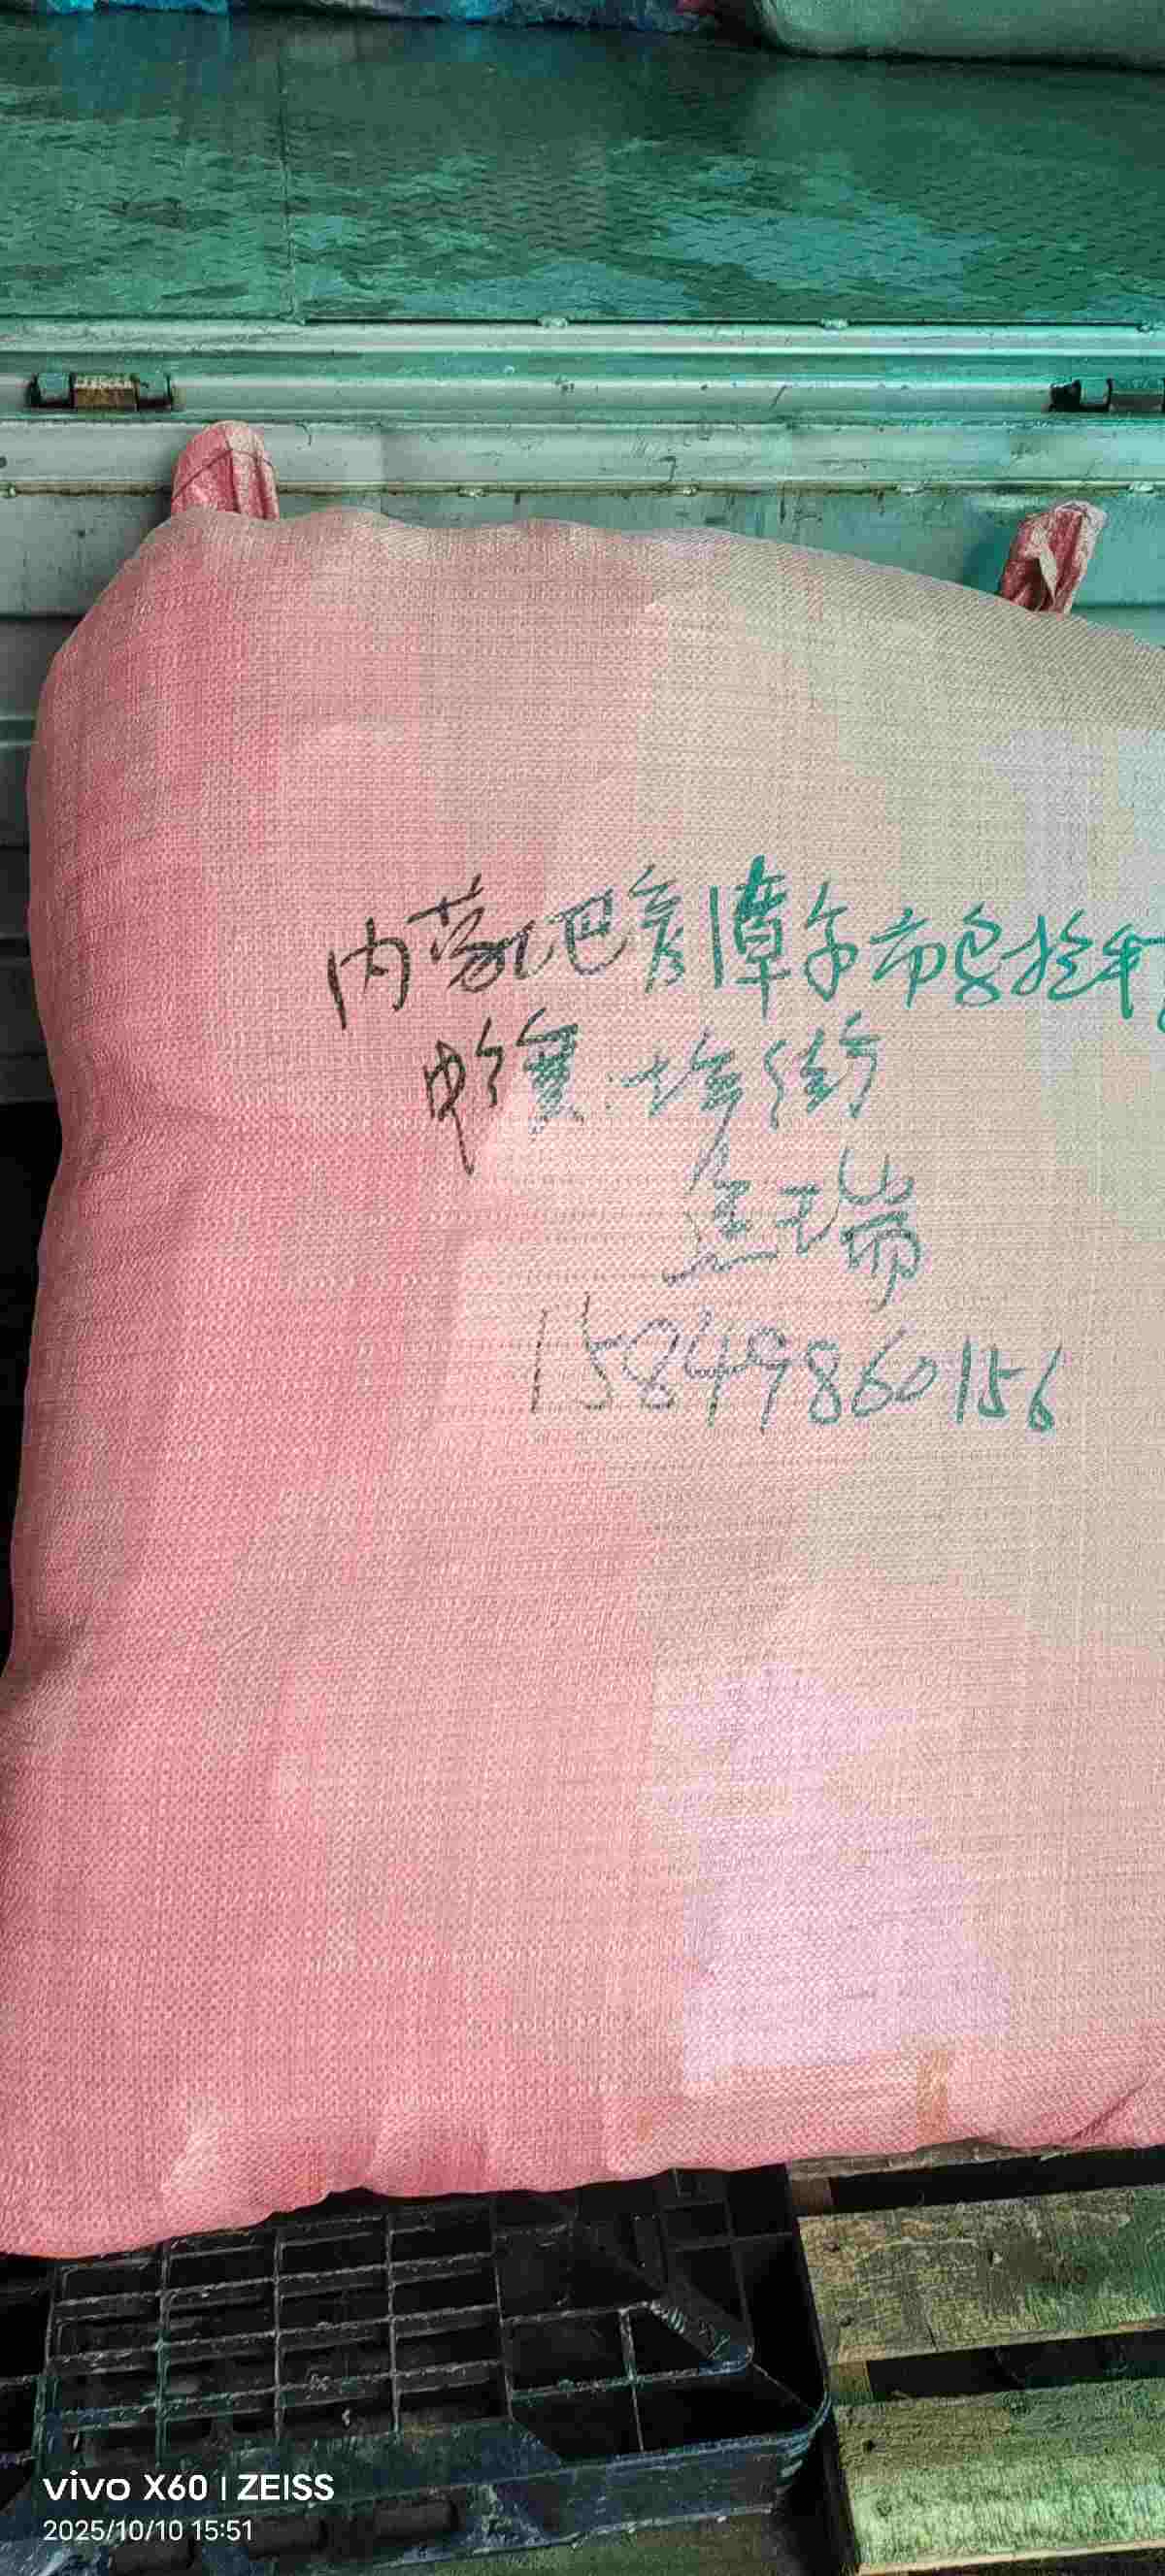 内蒙巴彦淖尔市乌拉
街
孟瑞
15849860156
vivo X60 | ZEISS
2025/10/10 15:51